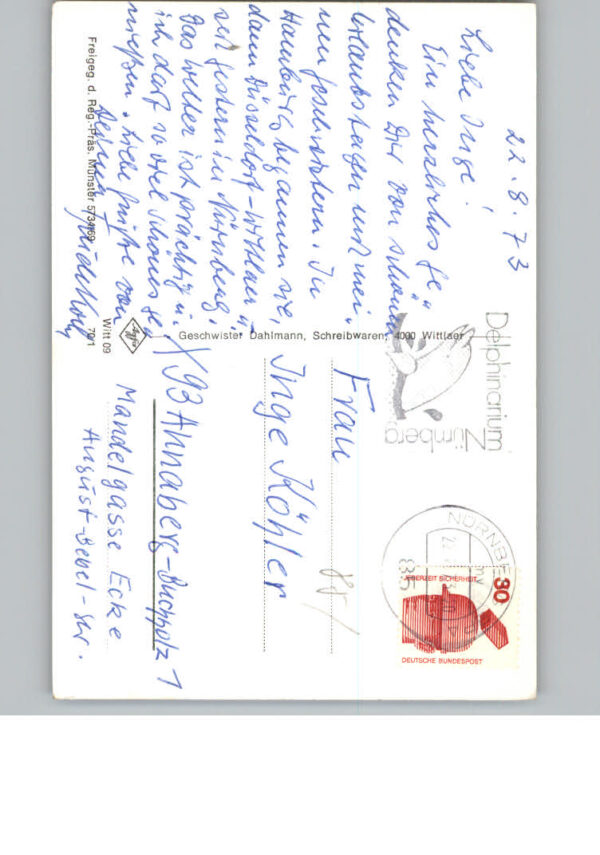 22.8.73
Liebe Inge!
Ein herzliches Ge-
denken Dir von schönen
Urlaubstagen mit mei-
nen Geschwistern. In
Hamburg begannen sie,
dann Düsseldorf-Wittlaer u.
seit gestern in Nürnberg.
Das Wetter ist prächtig u.
ich darf so viel Schönes ge-
nießen. Liebe Grüße von
Deiner
Freigeg. d. Reg.-Präs. Münster 5734/69
Geschwister Dahlmann, Schreibwaren, 4000 Wittlaer
Agfa
Witt 09
70/1
Delphinarium
Nürnberg
NÜRNBE
85
30
JEDERZEIT SICHERHEIT
DEUTSCHE BUNDESPOST
Frau
Inge Köhler
X 93 Annaberg-Buchholz 1
Mandelgasse Ecke
August-Bebel-Str.